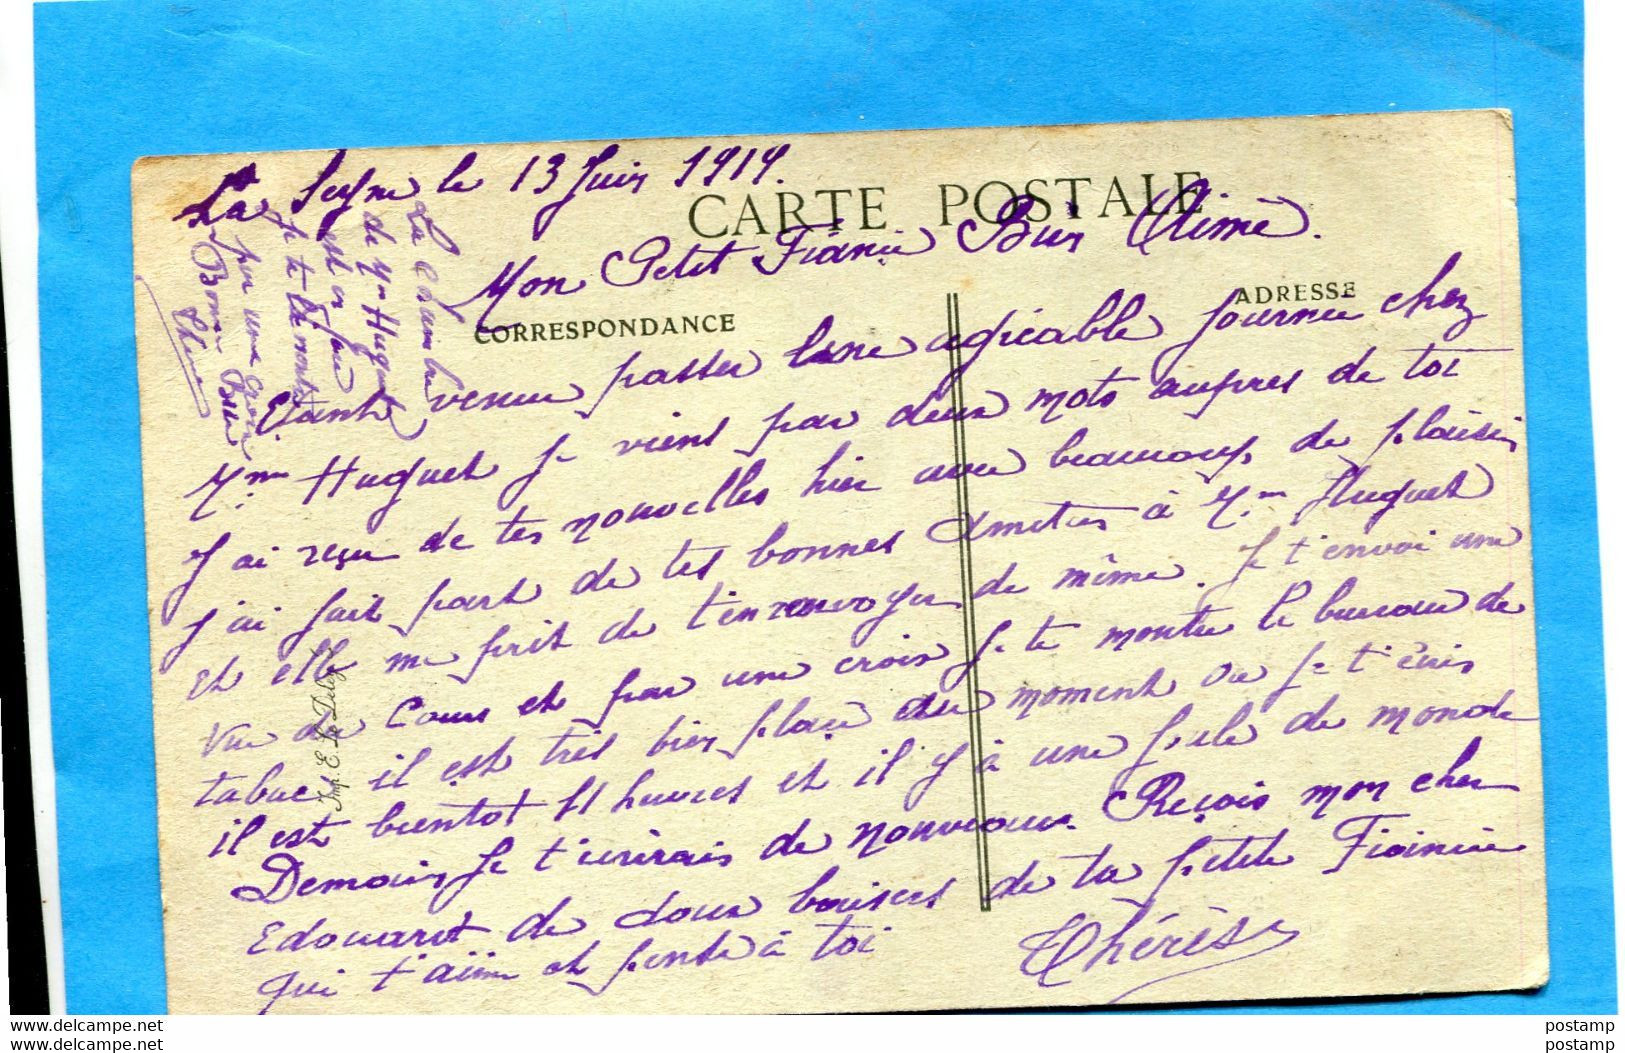 La Seyne le 13 Juin 1919.
CARTE POSTALE
Mon Petit Fiancé Bien Aimé.
CORRESPONDANCE
ADRESSE
Etant venue passer une agréable journée chez
Mme Huguet je viens par deux mots aupres de toi
J'ai reçu de tes nouvelles hier avec beaucoup de plaisir
j'ai fait part de tes bonnes amities à Mme Huguet
et elle me prit de t'en renvoyer de même. Je t'envoi une
vue de Cours et par une croix je te montre le bureau de
tabac il est très bien placé au moment ou je t'écris
il est bientot 11 heures et il y à une foule de monde
Demain je t'écrirais de nouveau. Reçois mon cher
Edouard de doux baisers de ta petite Fiancée
qui t'aime et pense à toi
Thérèse
La Chambre
de Mme Huguet
est en face
je te la montre
par une croix
Bonne
Imp. E. Le Deley
postamp.delcampe.net
postamp.delcampe.net
postamp
postamp